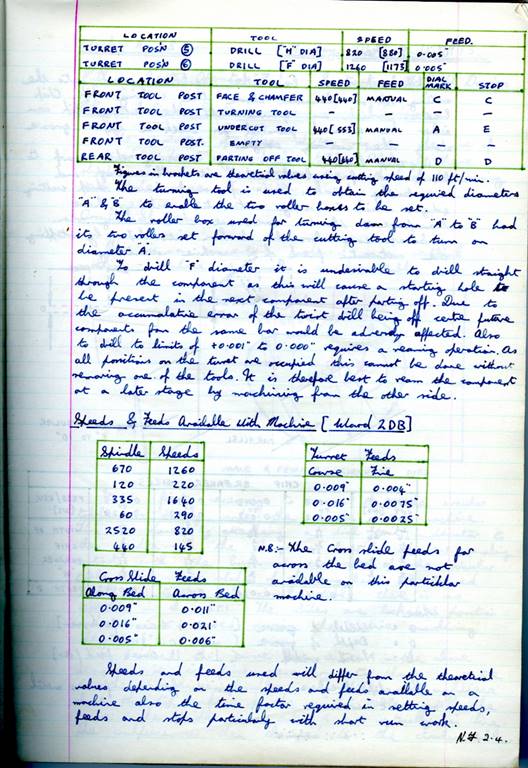 LOCATION TOOL SPEED FEED.
TURRET POSN ⑤ DRILL ["H" DIA] 820 [880] 0.005"
TURRET POSN ⑥ DRILL ["F" DIA] 1260 [1175] 0.005"
LOCATION TOOL SPEED FEED DIAL MARK STOP
FRONT TOOL POST FACE & CHAMFER 440[440] MANUAL C C
FRONT TOOL POST TURNING TOOL — — — —
FRONT TOOL POST UNDERCUT TOOL 440[553] MANUAL A E
FRONT TOOL POST. EMPTY — — — —
REAR TOOL POST PARTING OFF TOOL 440[440] MANUAL D D
Figures in brackets are theoretical values using cutting speed of 110 ft/min.
The turning tool is used to obtain the required diameters
"A" & "B" to enable the two roller boxes to be set.
The roller box used for turning down from "A" to "B" had
its two rollers set forward of the cutting tool to turn on
diameter "A".
To drill "F" diameter it is undesirable to drill straight
through the component as this will cause a starting hole to
be present in the next component after parting off. Due to
the accumulative error of the twist drill being off centre future
components from the same bar would be adversly affected. Also
to drill to limits of +0.001" to 0.000" requires a reaming operation. As
all positions on the turret are occupied this cannot be done without
removing one of the tools. It is therefore best to ream the component
at a later stage by machining from the other side.
Speeds & Feeds Available with Machine [Ward 2DB]
Spindle Speeds
670 1260
120 220
335 1640
60 290
2520 820
440 145
Turret Feeds
Coarse Fine
0.009" 0.004"
0.016" 0.0075"
0.005" 0.0025"
N.B:- The Cross slide feeds for
across the bed are not
available on this particular
machine.
Cross Slide Feeds
Along Bed Across Bed
0.009" 0.011"
0.016" 0.021"
0.005" 0.006"
Speeds and feeds used will differ from the theoretical
values depending on the speeds and feeds available on a
machine also the time factor required in setting speeds,
feeds and stops particularly with short run work.
2.4.